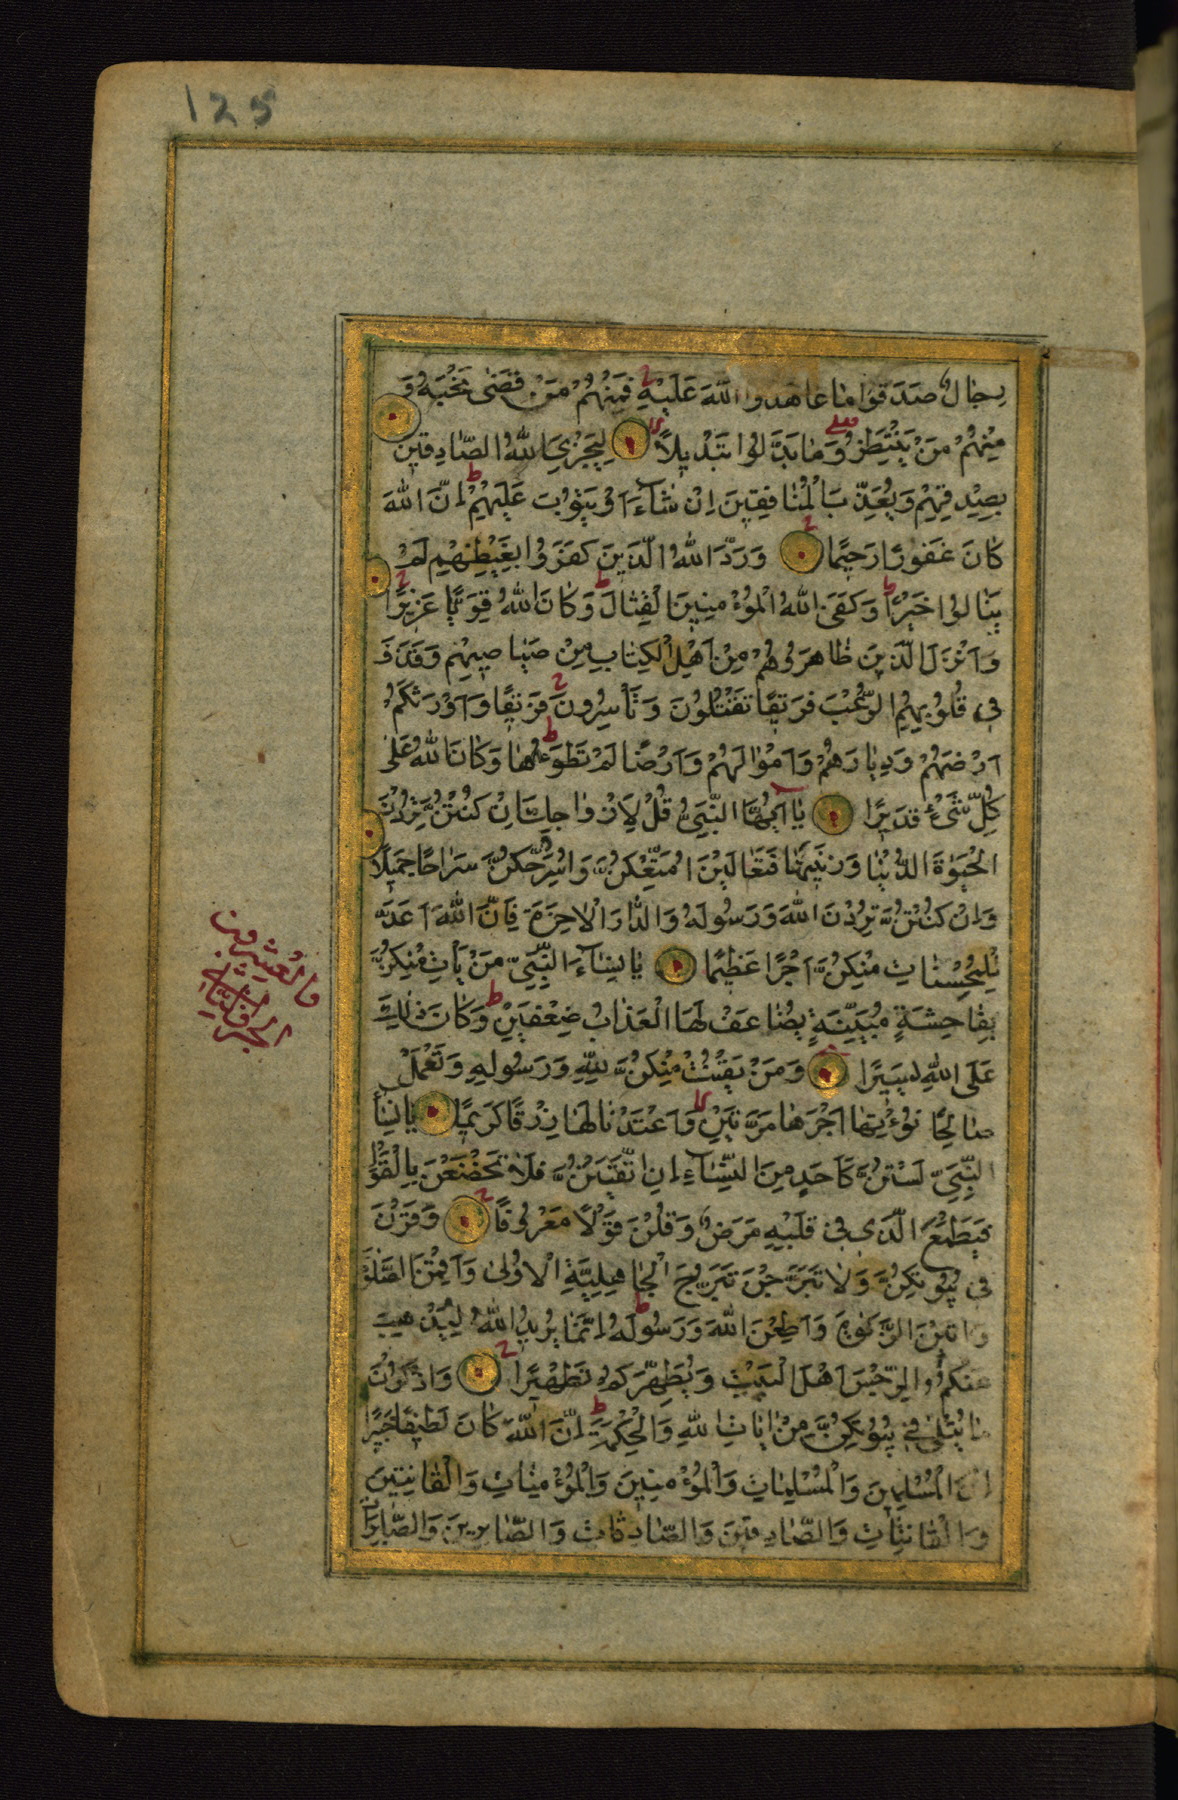 125
رِجَالٌ صَدَقُوا مَا عَاهَدُوا اللَّهَ عَلَيْهِ فَمِنْهُمْ مَنْ قَضَىٰ نَحْبَهُ وَ
مِنْهُمْ مَنْ يَنْتَظِرُ وَمَا بَدَّلُوا تَبْدِيلًا لِيَجْزِيَ اللَّهُ الصَّادِقِينَ
بِصِدْقِهِمْ وَيُعَذِّبَ الْمُنَافِقِينَ إِنْ شَاءَ أَوْ يَتُوبَ عَلَيْهِمْ إِنَّ اللَّهَ
كَانَ غَفُورًا رَحِيمًا وَرَدَّ اللَّهُ الَّذِينَ كَفَرُوا بِغَيْظِهِمْ لَمْ
يَنَالُوا خَيْرًا وَكَفَى اللَّهُ الْمُؤْمِنِينَ الْقِتَالَ وَكَانَ اللَّهُ قَوِيًّا عَزِيزًا
وَأَنْزَلَ الَّذِينَ ظَاهَرُوهُمْ مِنْ أَهْلِ الْكِتَابِ مِنْ صَيَاصِيهِمْ وَقَذَفَ
فِي قُلُوبِهِمُ الرُّعْبَ فَرِيقًا تَقْتُلُونَ وَتَأْسِرُونَ فَرِيقًا وَأَوْرَثَكُمْ
أَرْضَهُمْ وَدِيَارَهُمْ وَأَمْوَالَهُمْ وَأَرْضًا لَمْ تَطَئُوهَا وَكَانَ اللَّهُ عَلَىٰ
كُلِّ شَيْءٍ قَدِيرًا يَا أَيُّهَا النَّبِيُّ قُلْ لِأَزْوَاجِكَ إِنْ كُنْتُنَّ تُرِدْنَ
الْحَيَوٰةَ الدُّنْيَا وَزِينَتَهَا فَتَعَالَيْنَ أُمَتِّعْكُنَّ وَأُسَرِّحْكُنَّ سَرَاحًا جَمِيلًا
وَإِنْ كُنْتُنَّ تُرِدْنَ اللَّهَ وَرَسُولَهُ وَالدَّارَ الْآخِرَةَ فَإِنَّ اللَّهَ أَعَدَّ
لِلْمُحْسِنَاتِ مِنْكُنَّ أَجْرًا عَظِيمًا يَا نِسَاءَ النَّبِيِّ مَنْ يَأْتِ مِنْكُنَّ
بِفَاحِشَةٍ مُبَيِّنَةٍ يُضَاعَفْ لَهَا الْعَذَابُ ضِعْفَيْنِ وَكَانَ ذَٰلِكَ
عَلَى اللَّهِ يَسِيرًا وَمَنْ يَقْنُتْ مِنْكُنَّ لِلَّهِ وَرَسُولِهِ وَتَعْمَلْ
صَالِحًا نُؤْتِهَا أَجْرَهَا مَرَّتَيْنِ وَأَعْتَدْنَا لَهَا رِزْقًا كَرِيمًا يَا نِسَاءَ
النَّبِيِّ لَسْتُنَّ كَأَحَدٍ مِنَ النِّسَاءِ إِنِ اتَّقَيْتُنَّ فَلَا تَخْضَعْنَ بِالْقَوْلِ
فَيَطْمَعَ الَّذِي فِي قَلْبِهِ مَرَضٌ وَقُلْنَ قَوْلًا مَعْرُوفًا وَقَرْنَ
فِي بُيُوتِكُنَّ وَلَا تَبَرَّجْنَ تَبَرُّجَ الْجَاهِلِيَّةِ الْأُولَىٰ وَأَقِمْنَ الصَّلَوٰةَ
وَآتِينَ الزَّكَوٰةَ وَأَطِعْنَ اللَّهَ وَرَسُولَهُ إِنَّمَا يُرِيدُ اللَّهُ لِيُذْهِبَ
عَنْكُمُ الرِّجْسَ أَهْلَ الْبَيْتِ وَيُطَهِّرَكُمْ تَطْهِيرًا وَاذْكُرْنَ
مَا يُتْلَىٰ فِي بُيُوتِكُنَّ مِنْ آيَاتِ اللَّهِ وَالْحِكْمَةِ إِنَّ اللَّهَ كَانَ لَطِيفًا خَبِيرًا
إِنَّ الْمُسْلِمِينَ وَالْمُسْلِمَاتِ وَالْمُؤْمِنِينَ وَالْمُؤْمِنَاتِ وَالْقَانِتِينَ
وَالْقَانِتَاتِ وَالصَّادِقِينَ وَالصَّادِقَاتِ وَالصَّابِرِينَ وَالصَّابِرَاتِ
الجزء الثاني
والعشرون